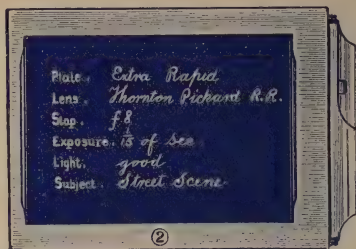 Plate. Extra Rapid
Lens. Thornton Pickard R.R.
Stop. f 8
Exposure. 1/15 of Sec
Light. good
Subject. Street Scene
②